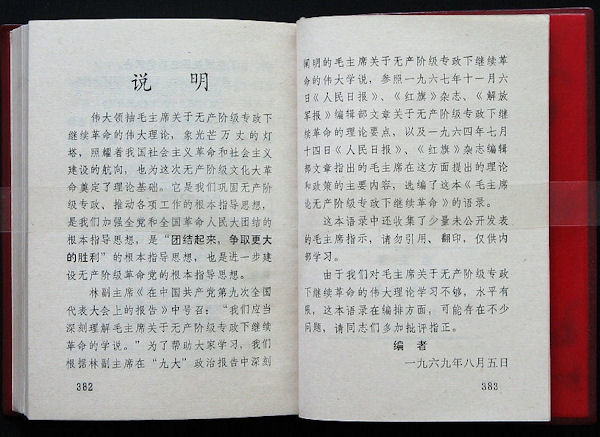 说 明
伟大领袖毛主席关于无产阶级专政下
继续革命的伟大理论，象光芒万丈的灯
塔，照耀着我国社会主义革命和社会主义
建设的航向，也为这次无产阶级文化大革
命奠定了理论基础。它是我们巩固无产阶
级专政、推动各项工作的根本指导思想，
是我们加强全党和全国革命人民大团结的
根本指导思想，是“团结起来，争取更大
的胜利”的根本指导思想，也是进一步建
设无产阶级革命党的根本指导思想。
林副主席《在中国共产党第九次全国
代表大会上的报告》中号召：“我们应当
深刻理解毛主席关于无产阶级专政下继续
革命的学说。”为了帮助大家学习，我们
根据林副主席在“九大”政治报告中深刻
382
阐明的毛主席关于无产阶级专政下继续革
命的伟大学说，参照一九六七年十一月六
日《人民日报》、《红旗》杂志、《解放
军报》编辑部文章关于无产阶级专政下继
续革命的理论要点，以及一九六四年七月
十四日《人民日报》、《红旗》杂志编辑
部文章指出的毛主席在这方面提出的理论
和政策的主要内容，选编了这本《毛主席
论无产阶级专政下继续革命》的语录。
这本语录中还收集了少量未公开发表
的毛主席指示，请勿引用、翻印，仅供内
部学习。
由于我们对毛主席关于无产阶级专政
下继续革命的伟大理论学习不够，水平有
限，这本语录在编排方面，可能存在不少
问题，请同志们多加批评指正。
编 者
一九六九年八月五日
383